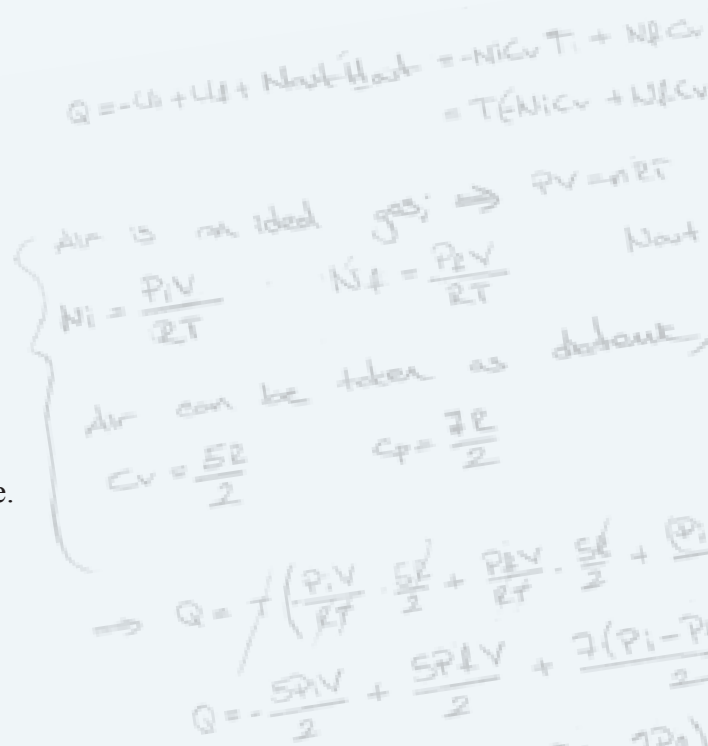 Q = -Ui + Uf + Nout Hout = -NiCv Ti + NfCv
= T(-NiCv + NfCv
Air is an ideal gas; ⇒ PV = nRT
Ni = PiV/RT Nf = PfV/RT Nout
Air can be taken as diatomic,
Cv = 5R/2 Cp = 7R/2
e.
⇒ Q = T(-PiV/RT · 5R/2 + PfV/RT · 5R/2 + (Pi
Q = -5PiV/2 + 5PfV/2 + 7(Pi-P